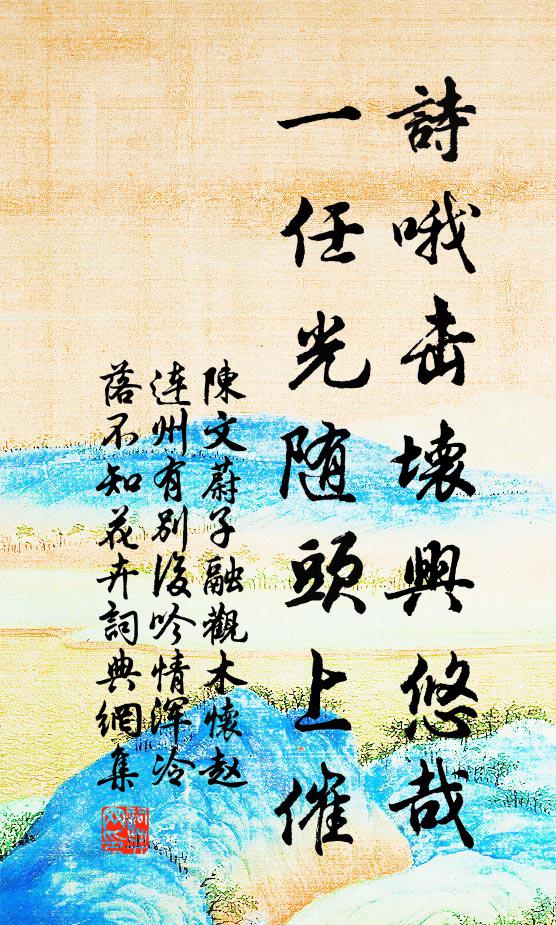 詩哦击壤興悠哉
一任光随頭上催
陳文蔚子融觀木懷赵
連州有别後吟情渾冷
落不知花卉詞典網集